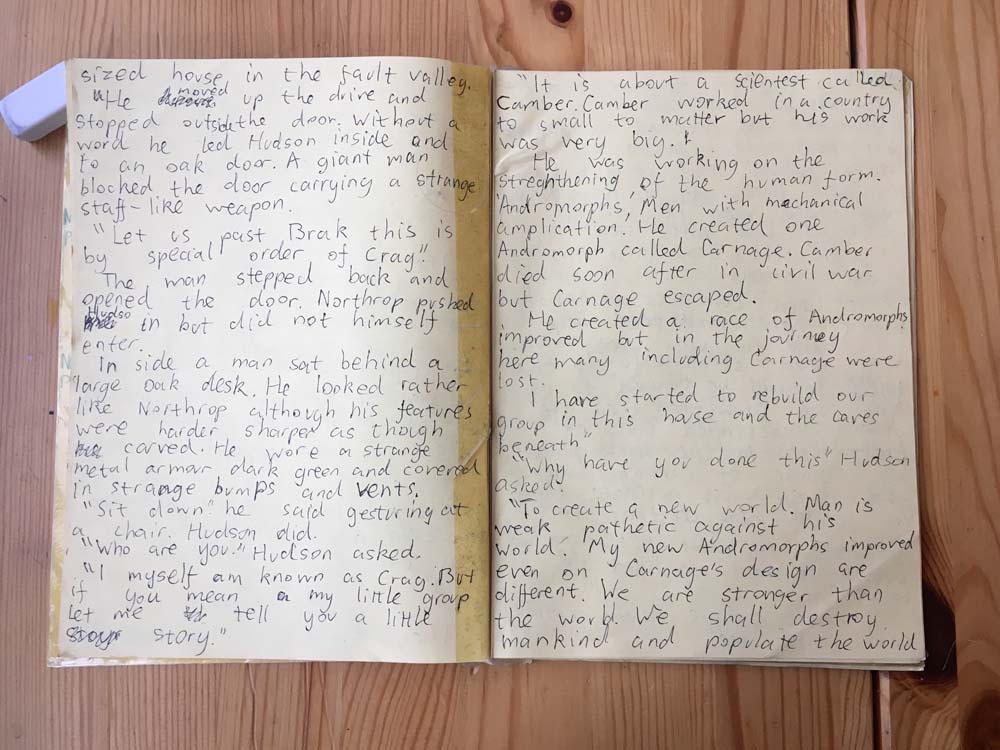 sized house in the fault valley.
"He moved up the drive and
stopped outside the door. Without a
word he led Hudson inside and
to an oak door. A giant man
blocked the door carrying a strange
staff-like weapon.
"Let us past Brak this is
by special order of Crag."
The man stepped back and
opened the door. Northrop pushed
Hudso in but did not himself
enter.
In side a man sat behind a
large oak desk. He looked rather
like Northrop although his features
were harder sharper as though
carved. He wore a strange
metal armour dark green and covered
in strange bumps and vents.
"Sit down" he said gesturing at
a chair. Hudson did.
"Who are you." Hudson asked.
"I myself am known as Crag. But
if you mean my little group
let me tell you a little
story."
"It is about a scientest called
Camber. Camber worked in a country
to small to matter but his work
was very big.
He was working on the
streghthening of the human form.
'Andromorphs', Men with mechanical
amplication. He created one
Andromorph called Carnage. Camber
died soon after in civil war
but Carnage escaped.
He created a race of Andromorphs
improved but in the journey
here many including Carnage were
lost.
I have started to rebuild our
group in this house and the caves
beneath"
"Why have you done this" Hudson
asked.
"To create a new world. Man is
weak pathetic against his
world. My new Andromorphs improved
even on Carnage's design are
different. We are stronger than
the world. We shall destroy
mankind and populate the world